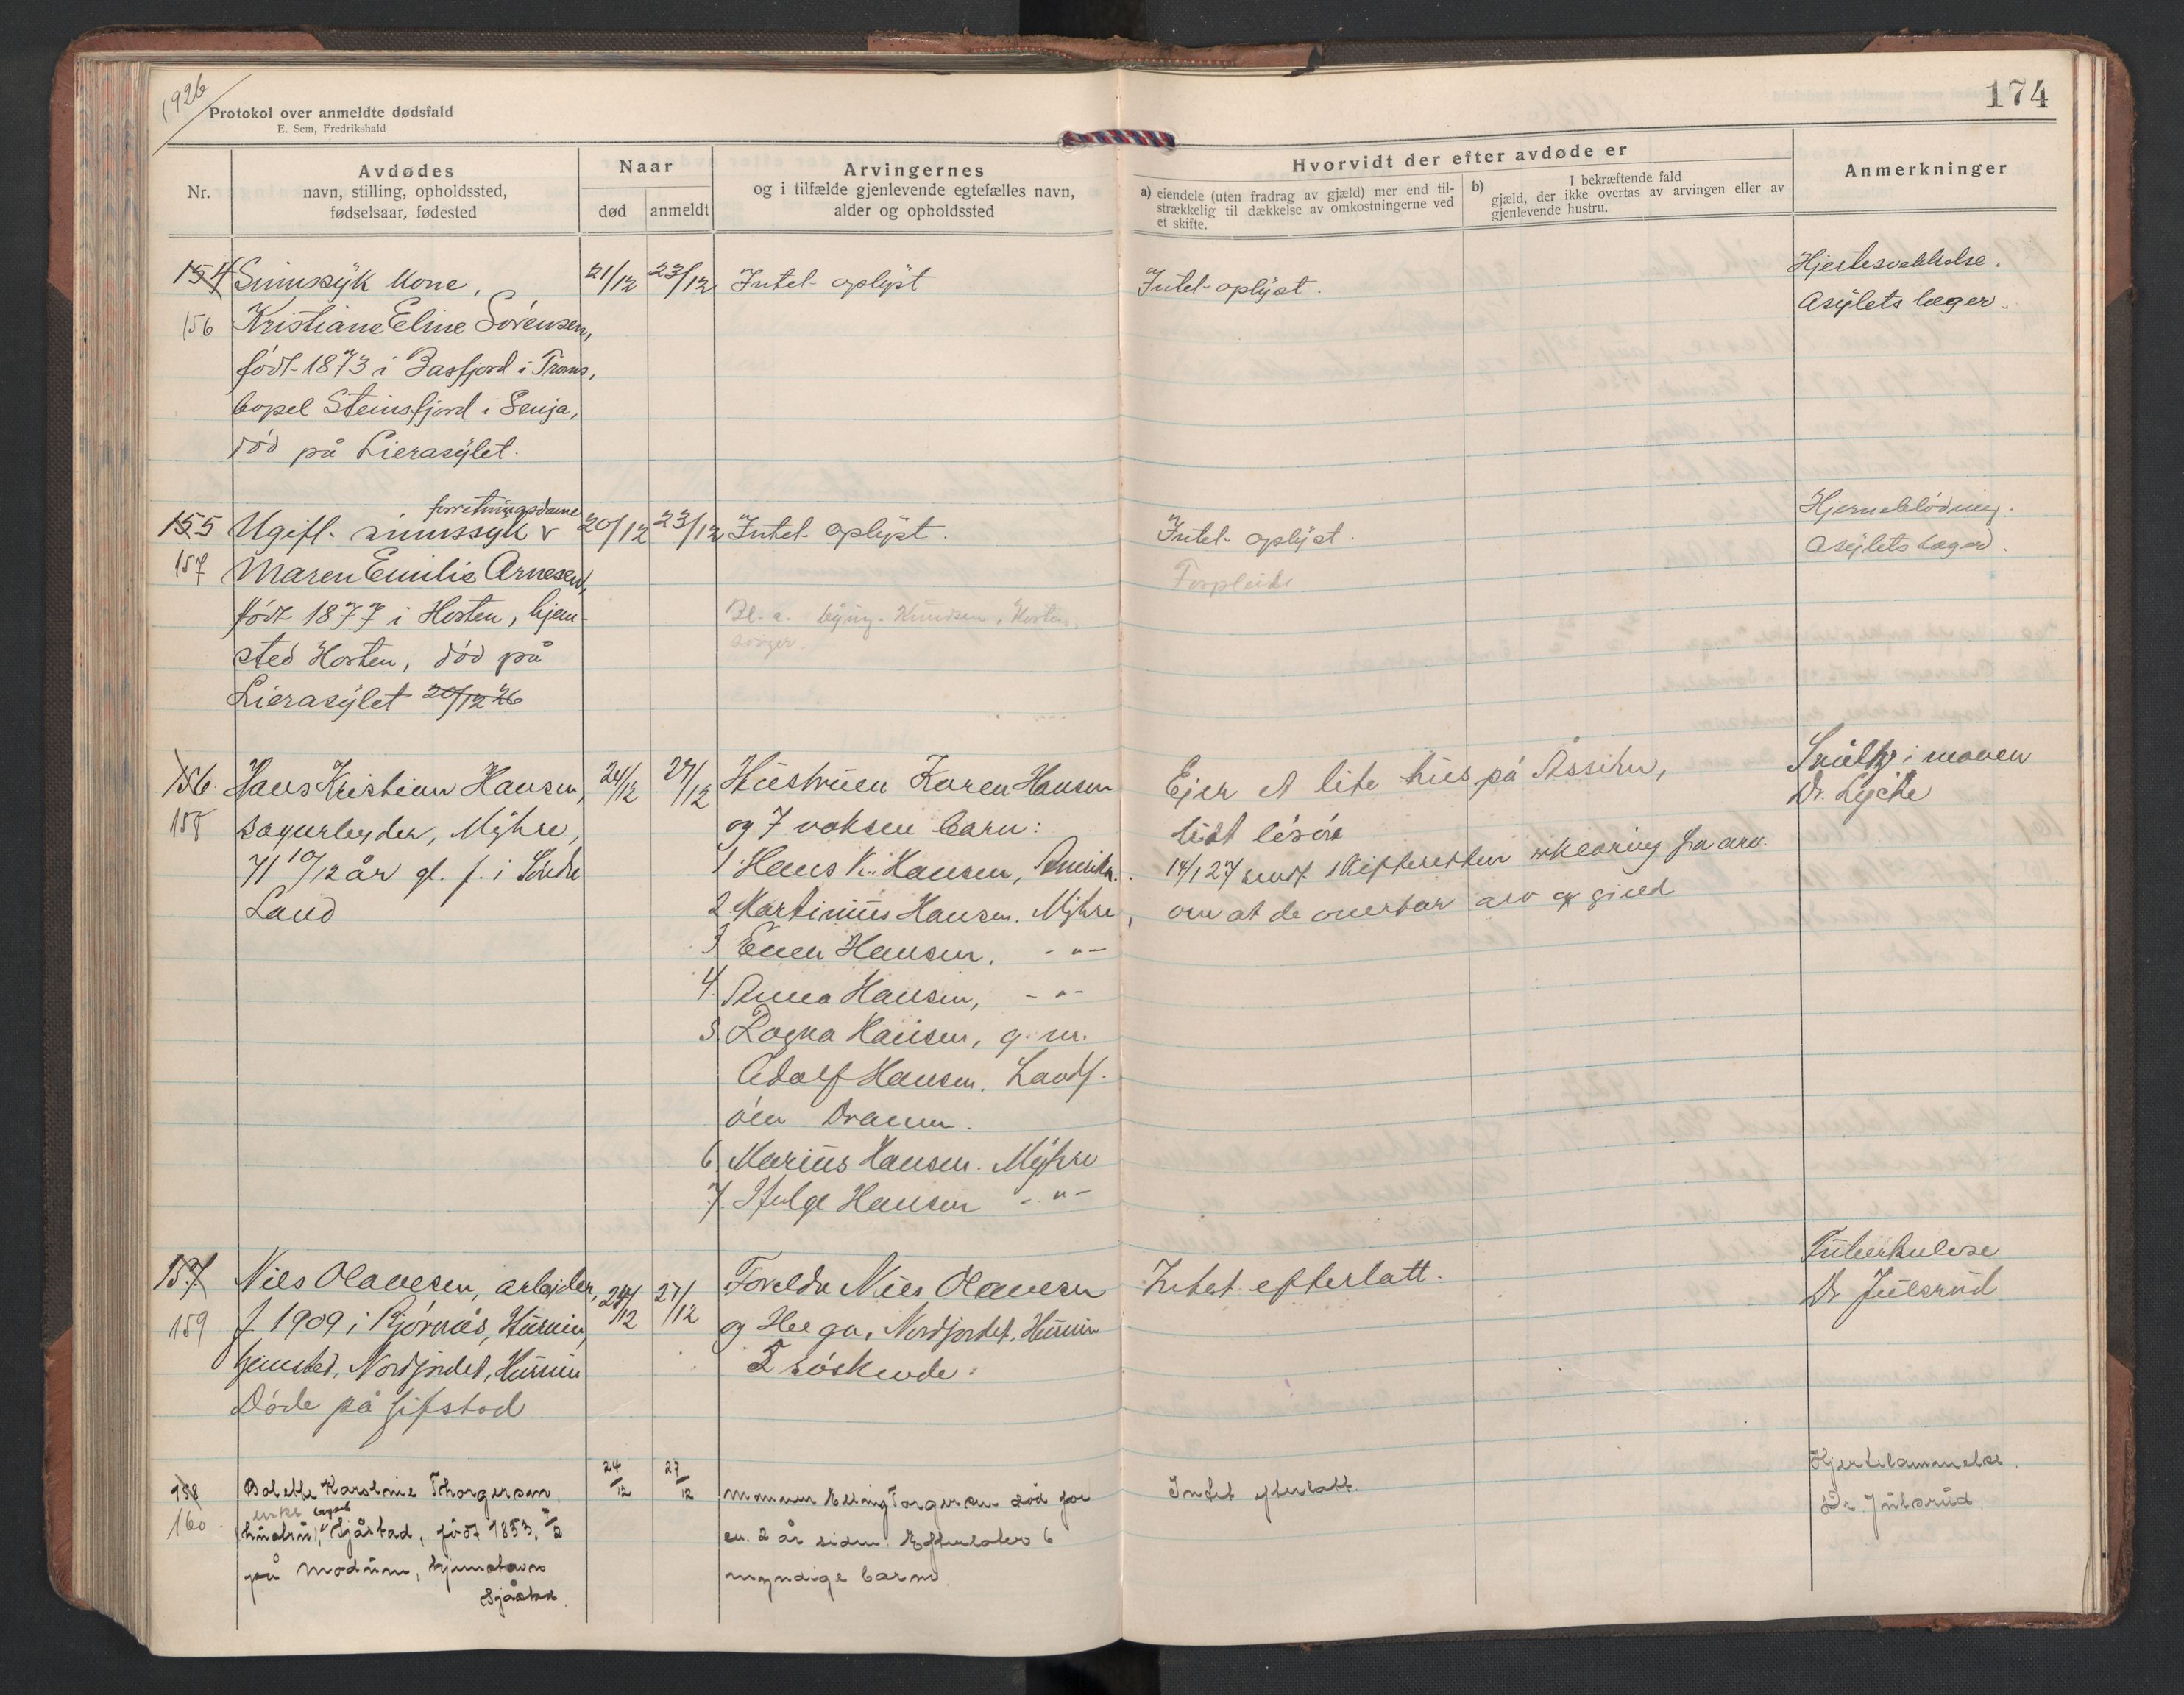 1926
Protokol over anmeldte dødsfald
E. Sem, Fredrikshald
174
Nr.
Avdødes
navn, stilling, opholdssted,
fødselsaar, fødested
Naar
død
anmeldt
Arvingernes
og i tilfælde gjenlevende egtefælles navn,
alder og opholdssted
Hvorvidt der efter avdøde er
a) eiendele (uten fradrag av gjæld) mer end til-
strækkelig til dækkelse av omkostningerne ved
et skifte.
b) I bekræftende fald
gjæld, der ikke overtas av arvingen eller av
gjenlevende hustru.
Anmerkninger
154
156
Sinnssyk kone,
Kristiane Eline Sørensen,
født 1873 i Basfjord i Troms,
bopel Steinsfjord i Senja,
død på Lierasylet.
21/12
23/12
Intet oplyst
Intet oplyst.
Hjertesvekkelse.
Asylets læger.
155
157
forretningsdame
Ugift sinnssyk v
Maren Emilie Arnesen,
født 1877 i Horten, hjem-
sted Horten, død på
Lierasylet 20/12 26
20/12
23/12
Intet oplyst.
Bl. a. Knudsen, Horten,
Intet oplyst.
Hjerneblødning.
Asylets læger.
156
158
Hans Kristian Hansen,
sagarbeyder, Myhre,
71 10/12 år gl. f. i Søndre
Land
24/12
27/12
Hustruen Karen Hansen
og 7 voksen barn:
1. Hans K. Hansen, Amerika.
2. Martinius Hansen. Myhre,
3 Enen Hansen. - " -
4. Anna Hansen, - " -
5. Ragna Hansen, g. m.
Adolf Hansen. Landf.
øen Dramm.
6. Marius Hansen. Myhre
7. Helge Hansen - " -
Ejer et lite hus på Assiden,
lidt løsøre
14/1 27 sendt skifteretten erklæring fra arv.
om at de overtar arv og gjeld
i maven
Dr. Lycke
157
159
Nils Olavesen, arbejder,
f. 1909 i Bjørnås, Hurum,
hjemsted, Nordjordet, Hurum
Døde på Gifstad
24/12
27/12
Foreldre Nils Olavesen
og Helga, Nordjordet. Hurum
5 søskende.
Intet efterlatt.
Tuberkulose
Dr Julsrud
158
160
Bolette Karoline Thorgersen,
enke bopel
(hustru), v Sjåstad, født 1853, 2/2
på Modum, hjemstavn
Sjåstad.
24/12
27/12
Mannen Elling Torgersen død for
ca. 2 år siden. Efterlater 6
myndige barn
Intet efterlatt.
Hjertelammelse.
Dr. Julsrud.